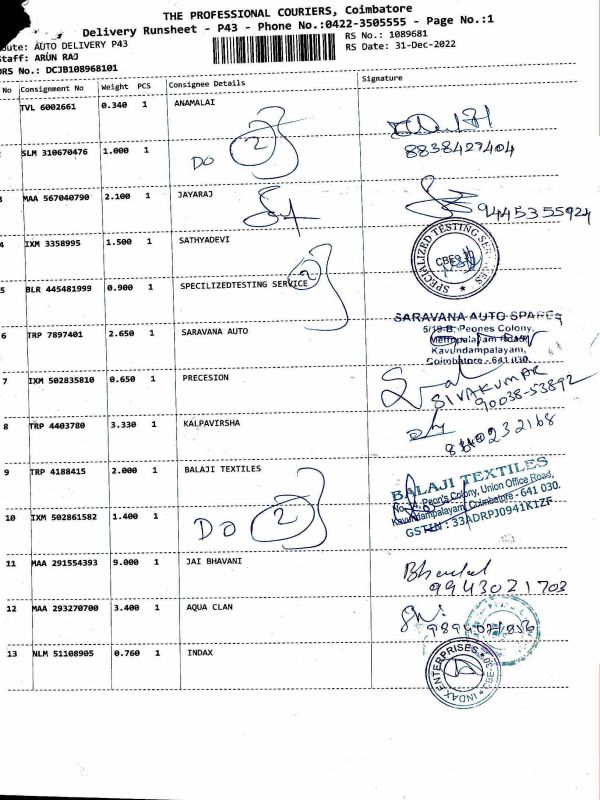 THE PROFESSIONAL COURIERS, Coimbatore
Delivery Runsheet - P43 - Phone No.:0422-3505555 - Page No.:1
oute: AUTO DELIVERY P43
RS No.: 1089681
Staff: ARUN RAJ
RS Date: 31-Dec-2022
DRS No.: DCJB108968101
No Consignment No Weight PCS Consignee Details Signature
TVL 6002661 0.340 1 ANAMALAI
SLM 310670476 1.000 1 DO 2
8838427404
MAA 567040790 2.100 1 JAYARAJ
9445355924
4 IXM 3358995 1.500 1 SATHYADEVI
SPECIALIZED TESTING SERVICES
CBE
5 BLR 445481999 0.900 1 SPECILIZEDTESTING SERVICE
2
SARAVANA AUTO SPARES
5/19-B, Peones Colony,
Mettupalayam Road,
6 TRP 7897401 2.650 1 SARAVANA AUTO
Kavundampalayam,
Coimbatore - 641 030.
7 IXM 502835810 0.650 1 PRECESION
SIVAKUMAR
90038-53892
8 TRP 4403780 3.330 1 KALPAVIRSHA
9 TRP 4188415 2.000 1 BALAJI TEXTILES
BALAJI TEXTILES
Peon's Colony, Union Office Road,
Kavundampalayam, Coimbatore - 641 030.
GSTIN : 33ADRPJ0941K1ZF
10 IXM 502861582 1.400 1 DO 2
11 MAA 291554393 9.000 1 JAI BHAVANI
9943021703
12 MAA 293270700 3.400 1 AQUA CLAN
13 NLM 51108905 0.760 1 INDAX
INDAX ENTERPRISES